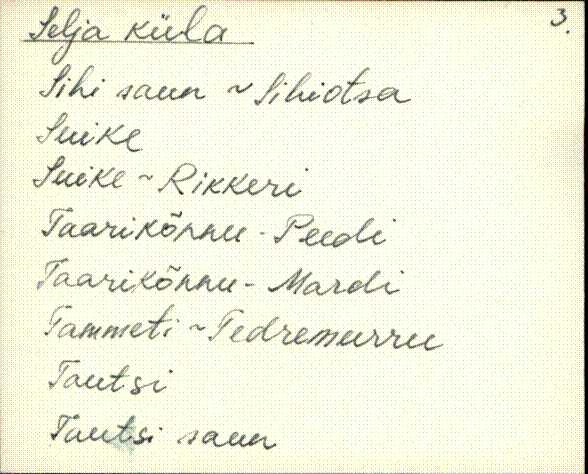 Selja küla 3.
Sihi saun ~ Sihiotsa
Suike
Suike ~ Rikkeri
Taarikõnnu - Peedi
Taarikõnnu - Mardi
Tammeti ~ Tedremurru
Tautsi
Tautsi saun